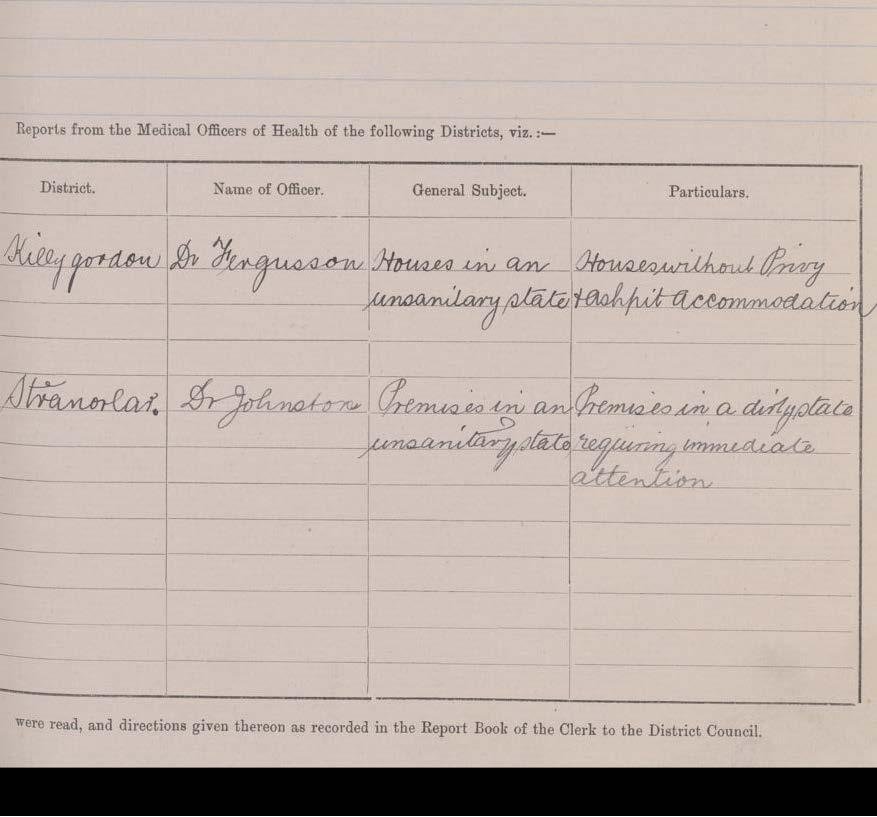 Reports from the Medical Officers of Health of the following Districts, viz. :—
District. Name of Officer. General Subject. Particulars.
Killygordon Dr Fergusson Houses in an Houses without Privy
unsanitary state & ashpit accommodation
Stranorlar. Dr Johnston Premises in an Premises in a dirty state
unsanitary state requiring immediate
attention
were read, and directions given thereon as recorded in the Report Book of the Clerk to the District Council.